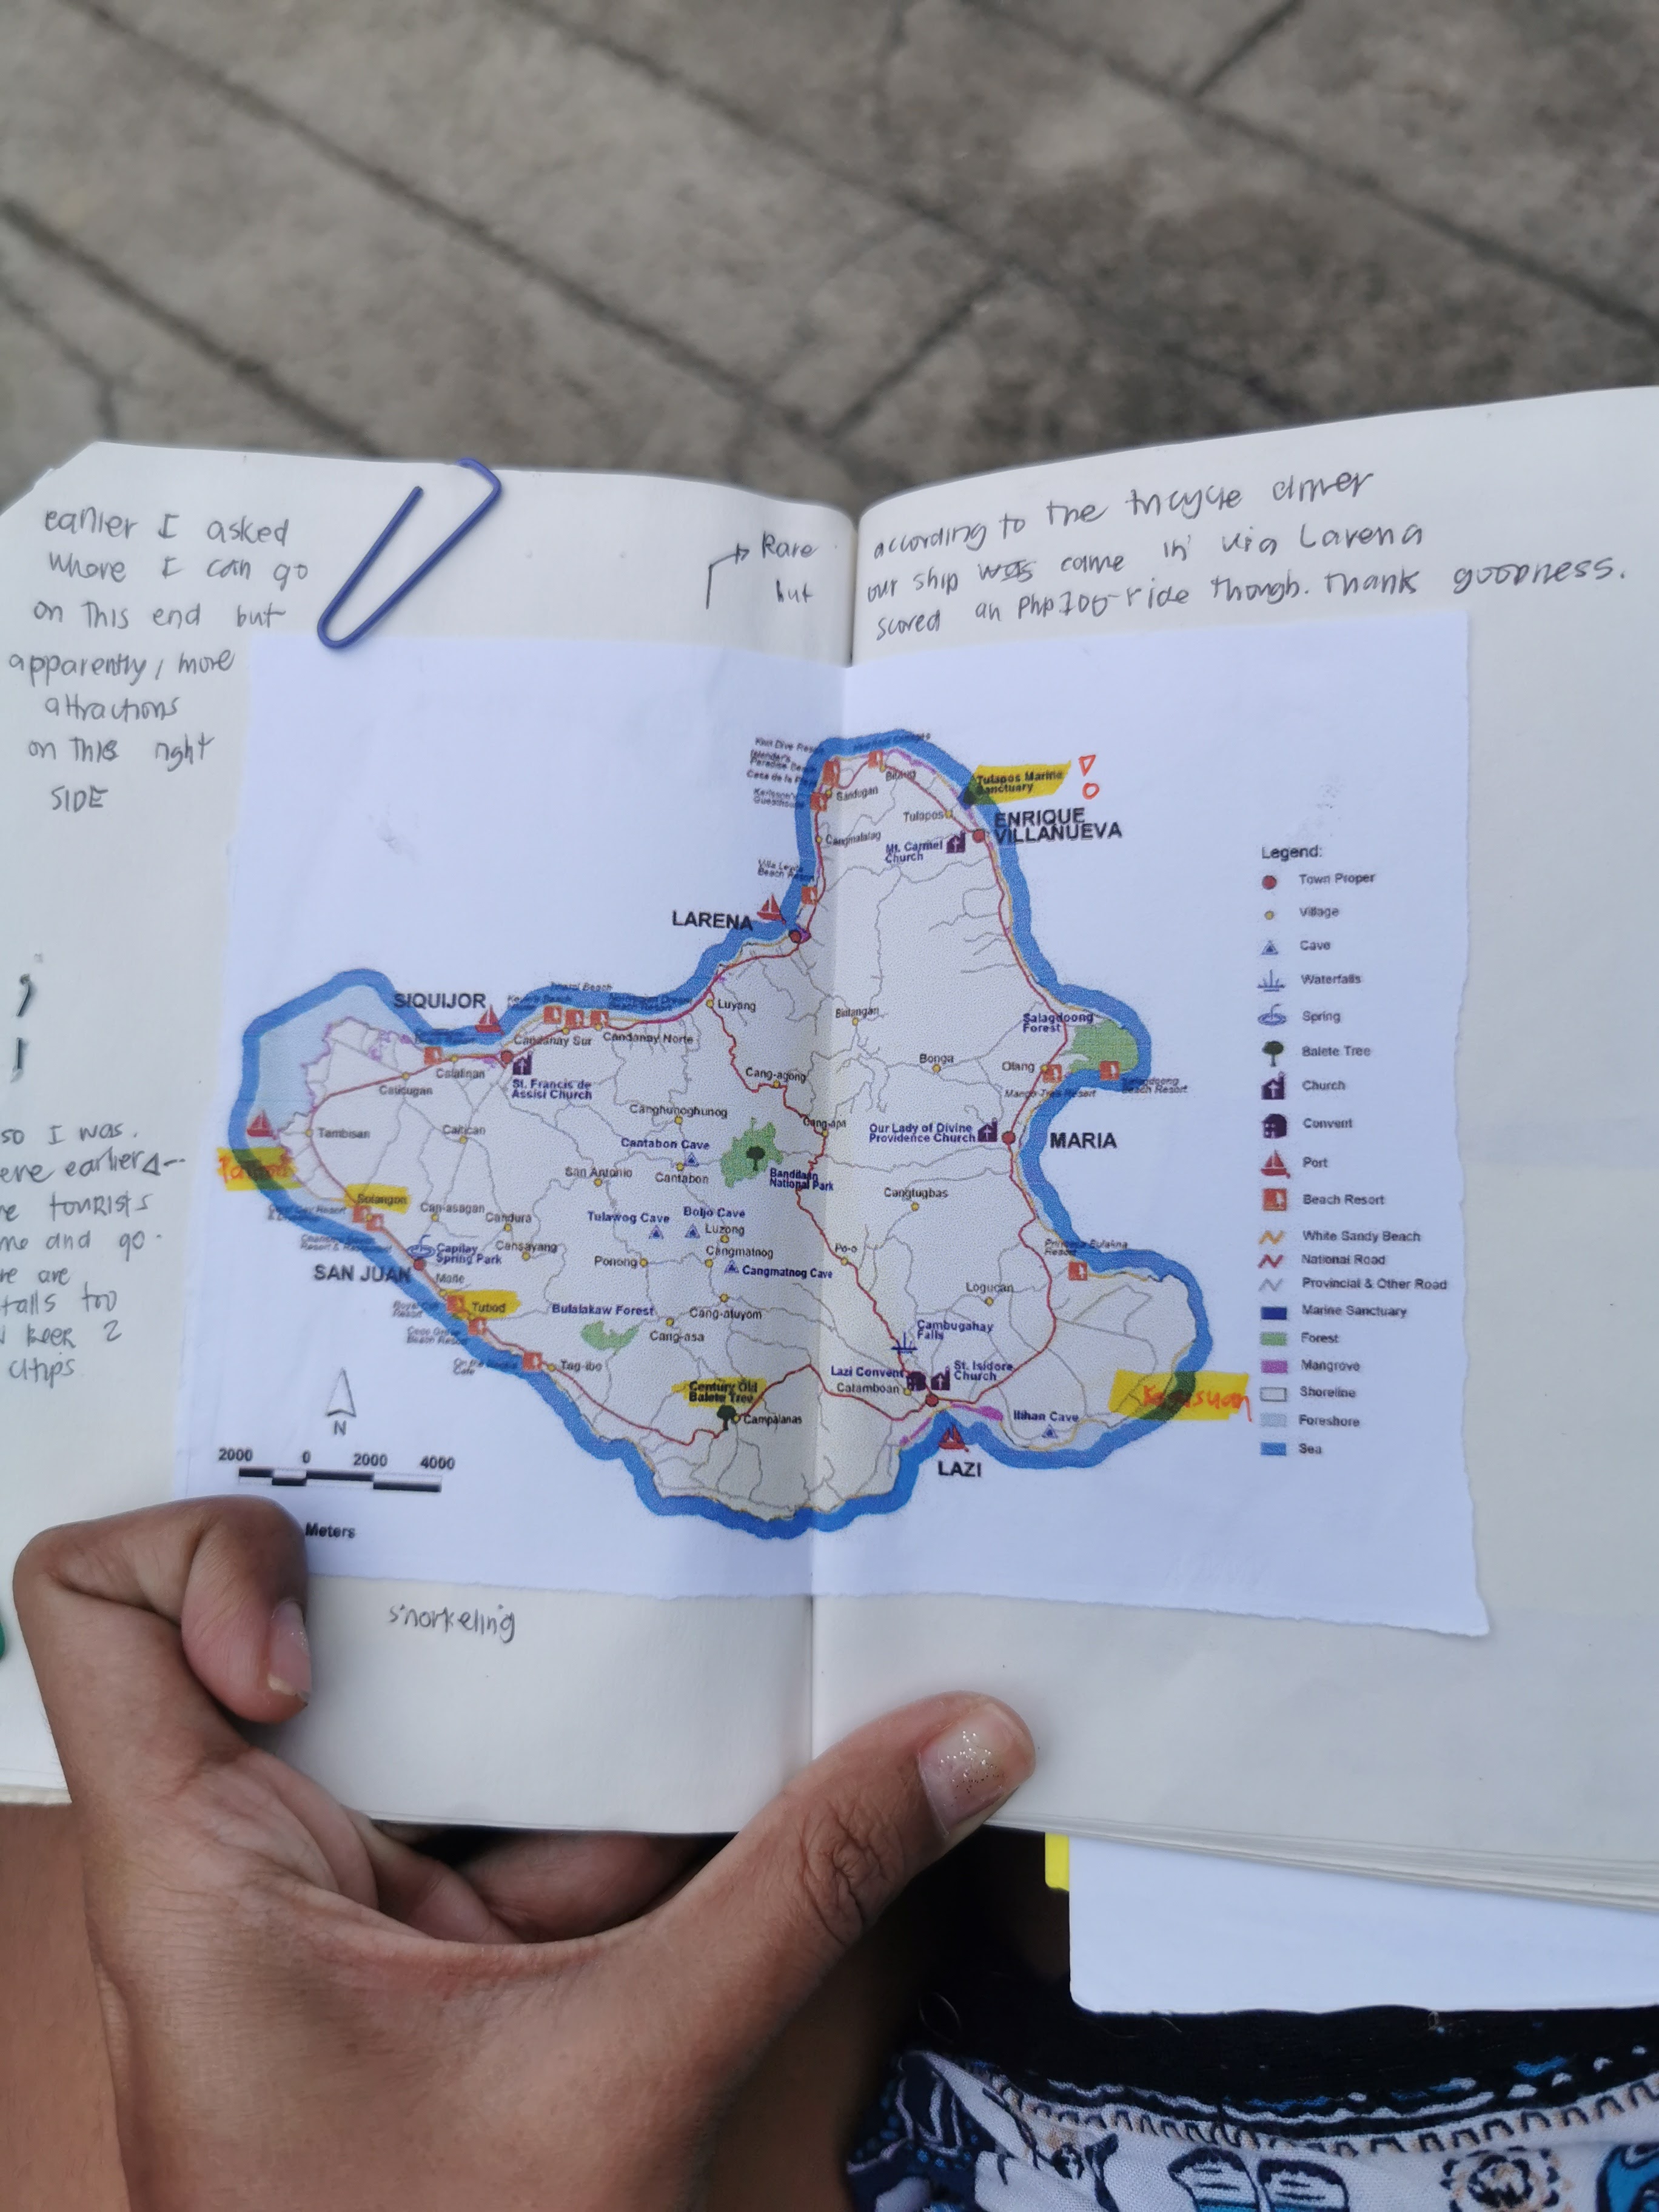 earlier I asked
where I can go
on this end but
apparently, more
attractions
on this right
SIDE
Rare
but
according to the tricycle driver
our ship was came in via Larena
scored an Php100-ride though. thank goodness.
Tulapos Marine
Sanctuary
ENRIQUE
VILLANUEVA
Bitaug
Sandugan
Tulapos
Cangmalalag
Mt. Carmel
Church
Villa Leyda
Beach Resort
LARENA
SIQUIJOR
Luyang
Candanay Sur
Candanay Norte
Catalinan
St. Francis de
Assisi Church
Caticugan
Tambisan
Caitican
Canghunoghunog
Cang-agong
Cang-apa
Binlangan
Bonga
Salagdoong
Forest
Olang
Salagdoong
Beach Resort
Mango Tree Resort
Our Lady of Divine
Providence Church
MARIA
Cantabon Cave
Cantabon
San Antonio
Bandilaan
National Park
Canglugbas
Solangon
Can-asagan
Candura
Tulawog Cave
Boljo Cave
Luzong
Capilay
Spring Park
Cansayang
Ponong
Cangmatnog
Cangmatnog Cave
Po-o
Princesa Bulakna
Resort
SAN JUAN
Maite
Tubod
Bulalakaw Forest
Cang-atuyom
Cang-asa
Logucan
Cambugahay
Falls
Coco Grove
Beach Resort
Tag-ibo
Lazi Convent
St. Isidore
Church
Catamboan
Century Old
Balete Tree
Campalanas
Kagusuan
Ilihan Cave
LAZI
N
2000 0 2000 4000
Meters
Legend:
Town Proper
Village
Cave
Waterfalls
Spring
Balete Tree
Church
Convent
Port
Beach Resort
White Sandy Beach
National Road
Provincial & Other Road
Marine Sanctuary
Forest
Mangrove
Shoreline
Foreshore
Sea
so I was
ere earlier
re tourists
me and go.
re are
falls too
beer 2
chips
snorkeling